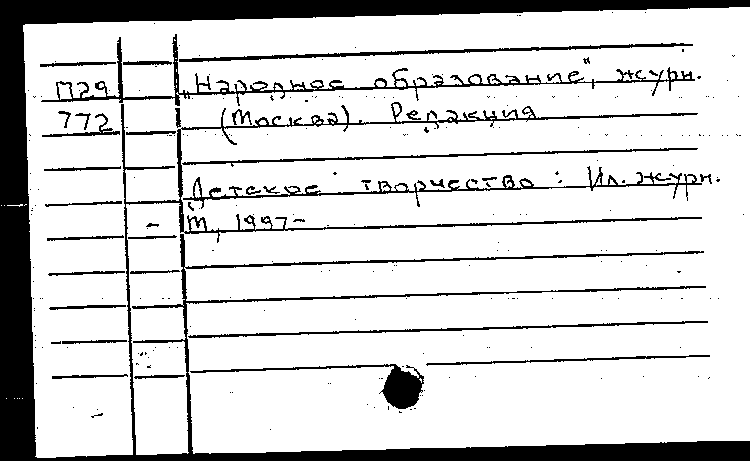 П29 „Народное образование", журн.
772 (Москва). Редакция
Детское творчество: Ил. журн.
М, 1997-